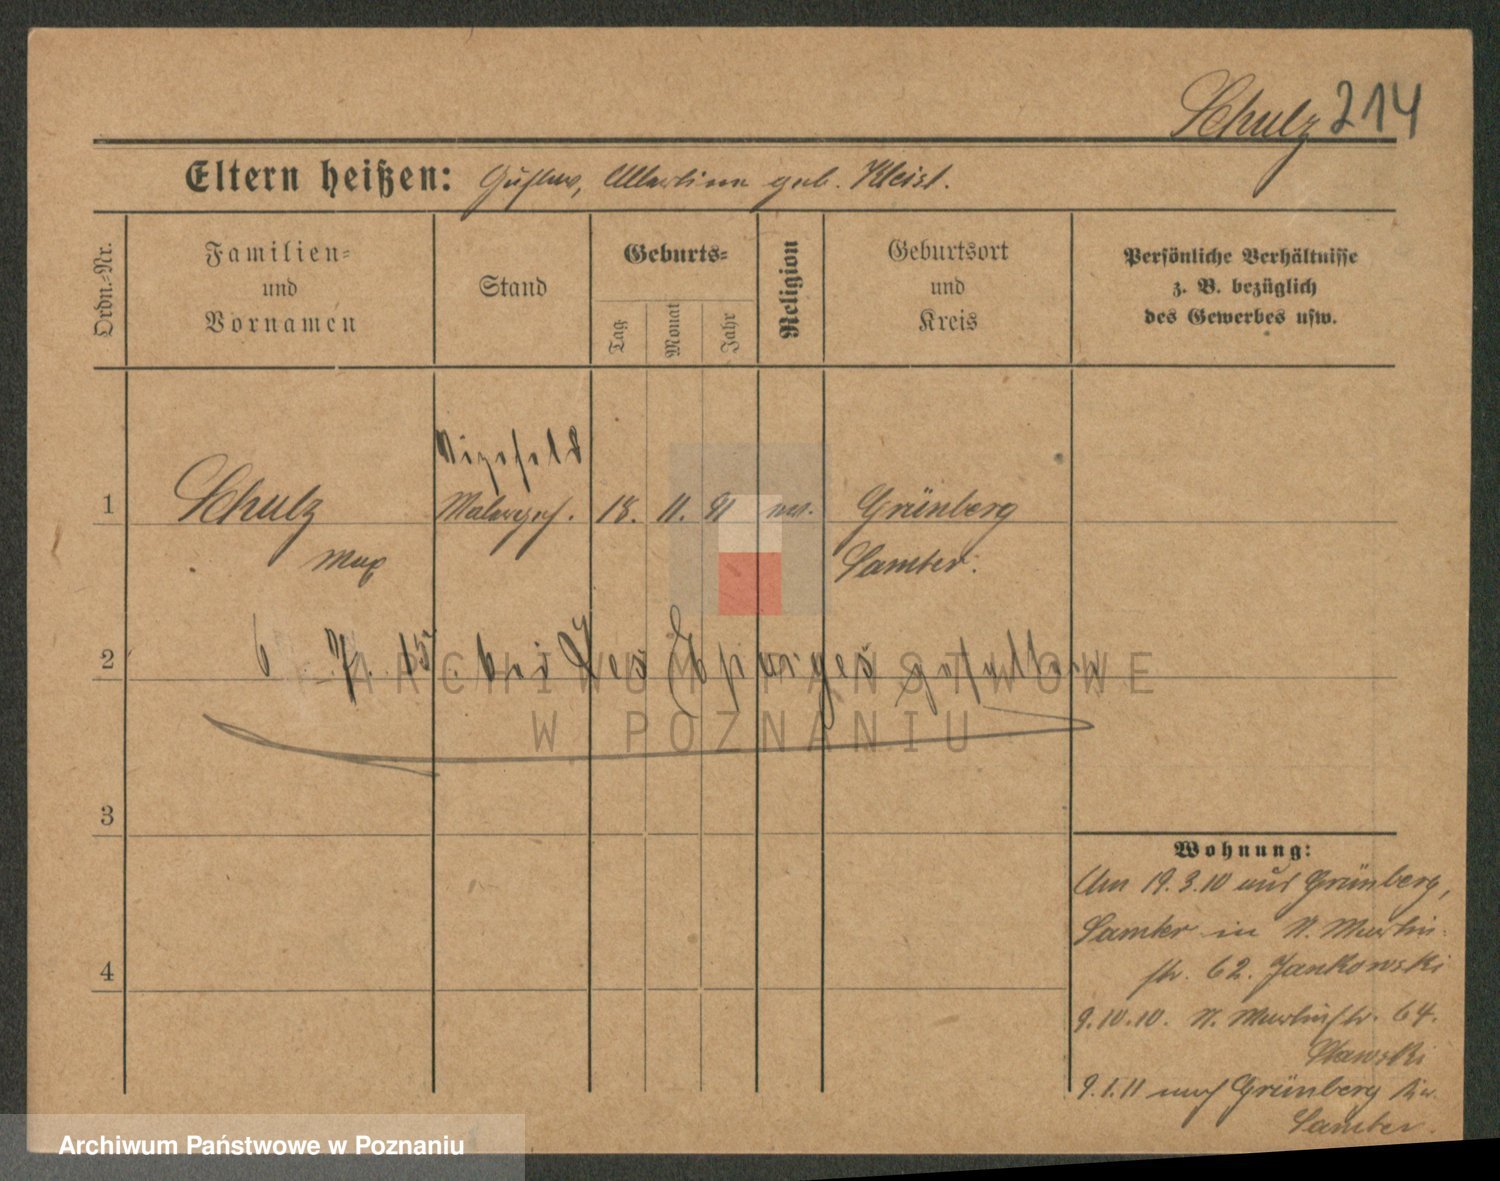 Schulz 214
Eltern heißen: Gustav, Albertine geb. Kleist.
Ordn.-Nr.
Familien-
und
Vornamen
Stand
Geburts-
Tag
Monat
Jahr
Religion
Geburtsort
und
Kreis
Persönliche Verhältnisse
z. B. bezüglich
des Gewerbes usw.
Vizefeld
1 Schulz Malergeh. 18. 11. 91 ev. Grünberg
Max Samter.
2 6. 7. 15. bei Les Eparges gefallen
3
4
Wohnung:
Am 19.3.10 aus Grünberg,
Samter in St. Martin-
str. 62. Jankowski
9.10.10. St. Martinstr. 64.
Stawski
9.1.11 nach Grünberg Kr.
Samter.
ARCHIWUM PAŃSTWOWE
W POZNANIU
Archiwum Państwowe w Poznaniu